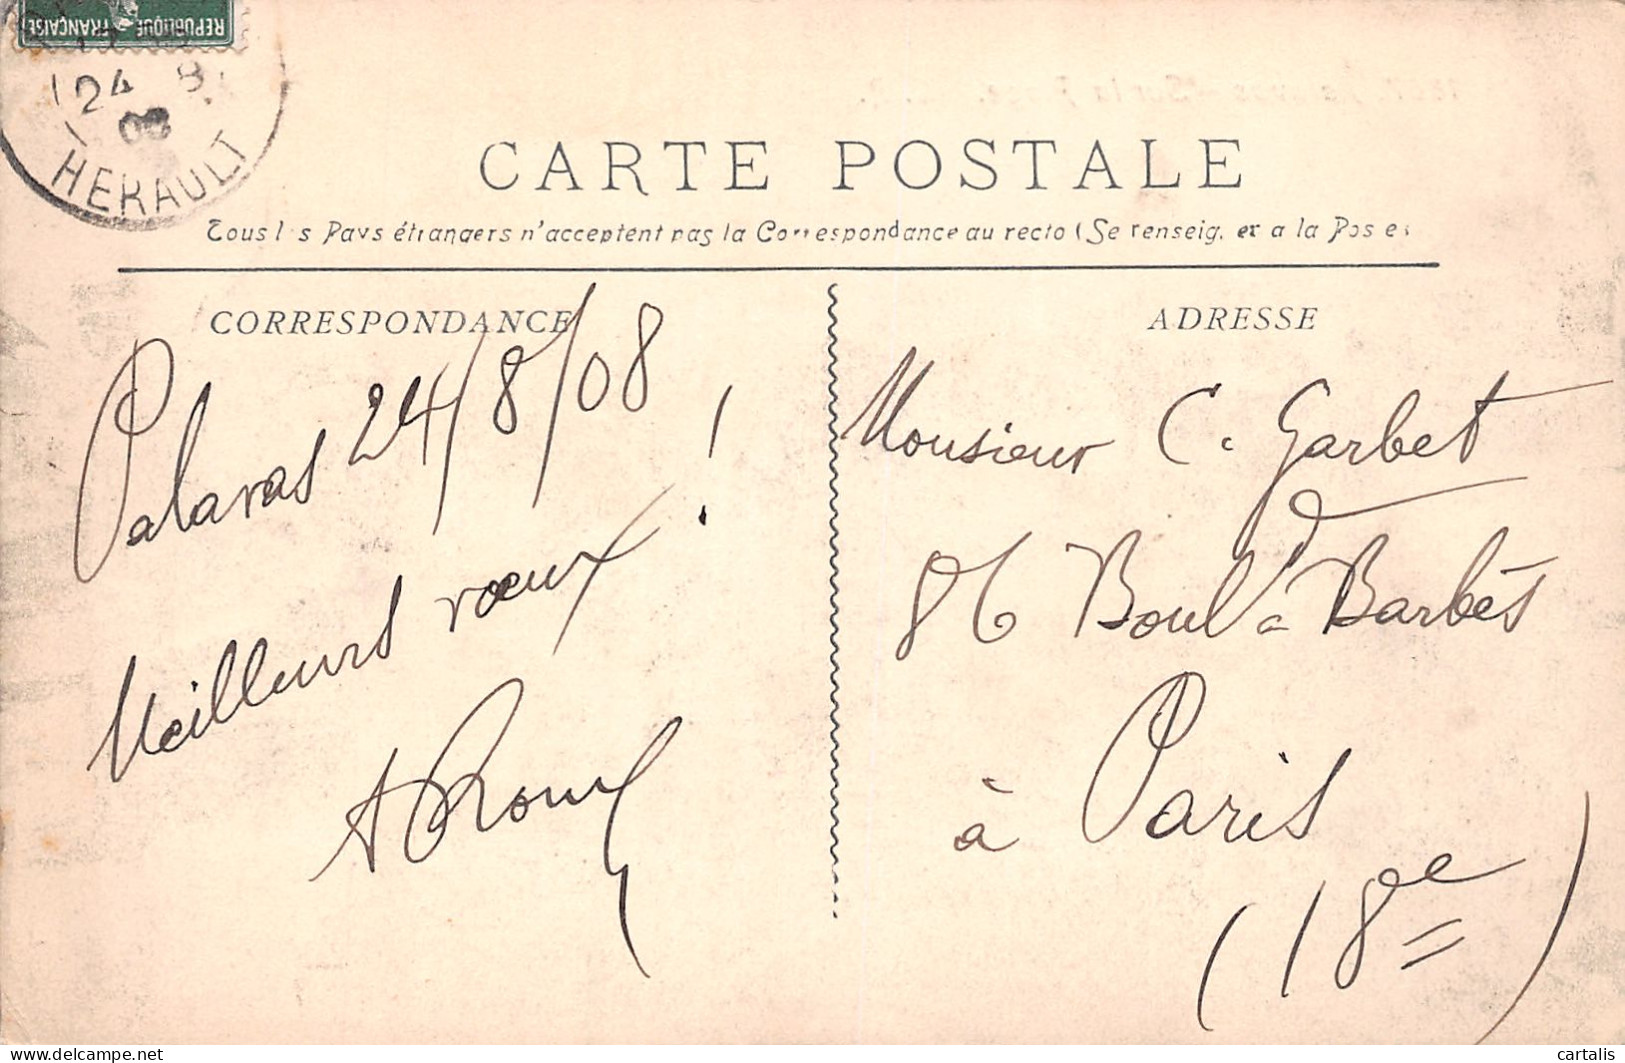 REPUBLIQUE FRANÇAISE
24 8
08
HERAULT
CARTE POSTALE
Tous les Pays étrangers n'acceptent pas la Correspondance au recto (Se renseigner a la Poste)
CORRESPONDANCE
Palavas 24/8/08
Meilleurs vœux !
ADRESSE
Monsieur C. Garbet
86 Boulᵈ Barbès
à Paris
(18e)
cartalis